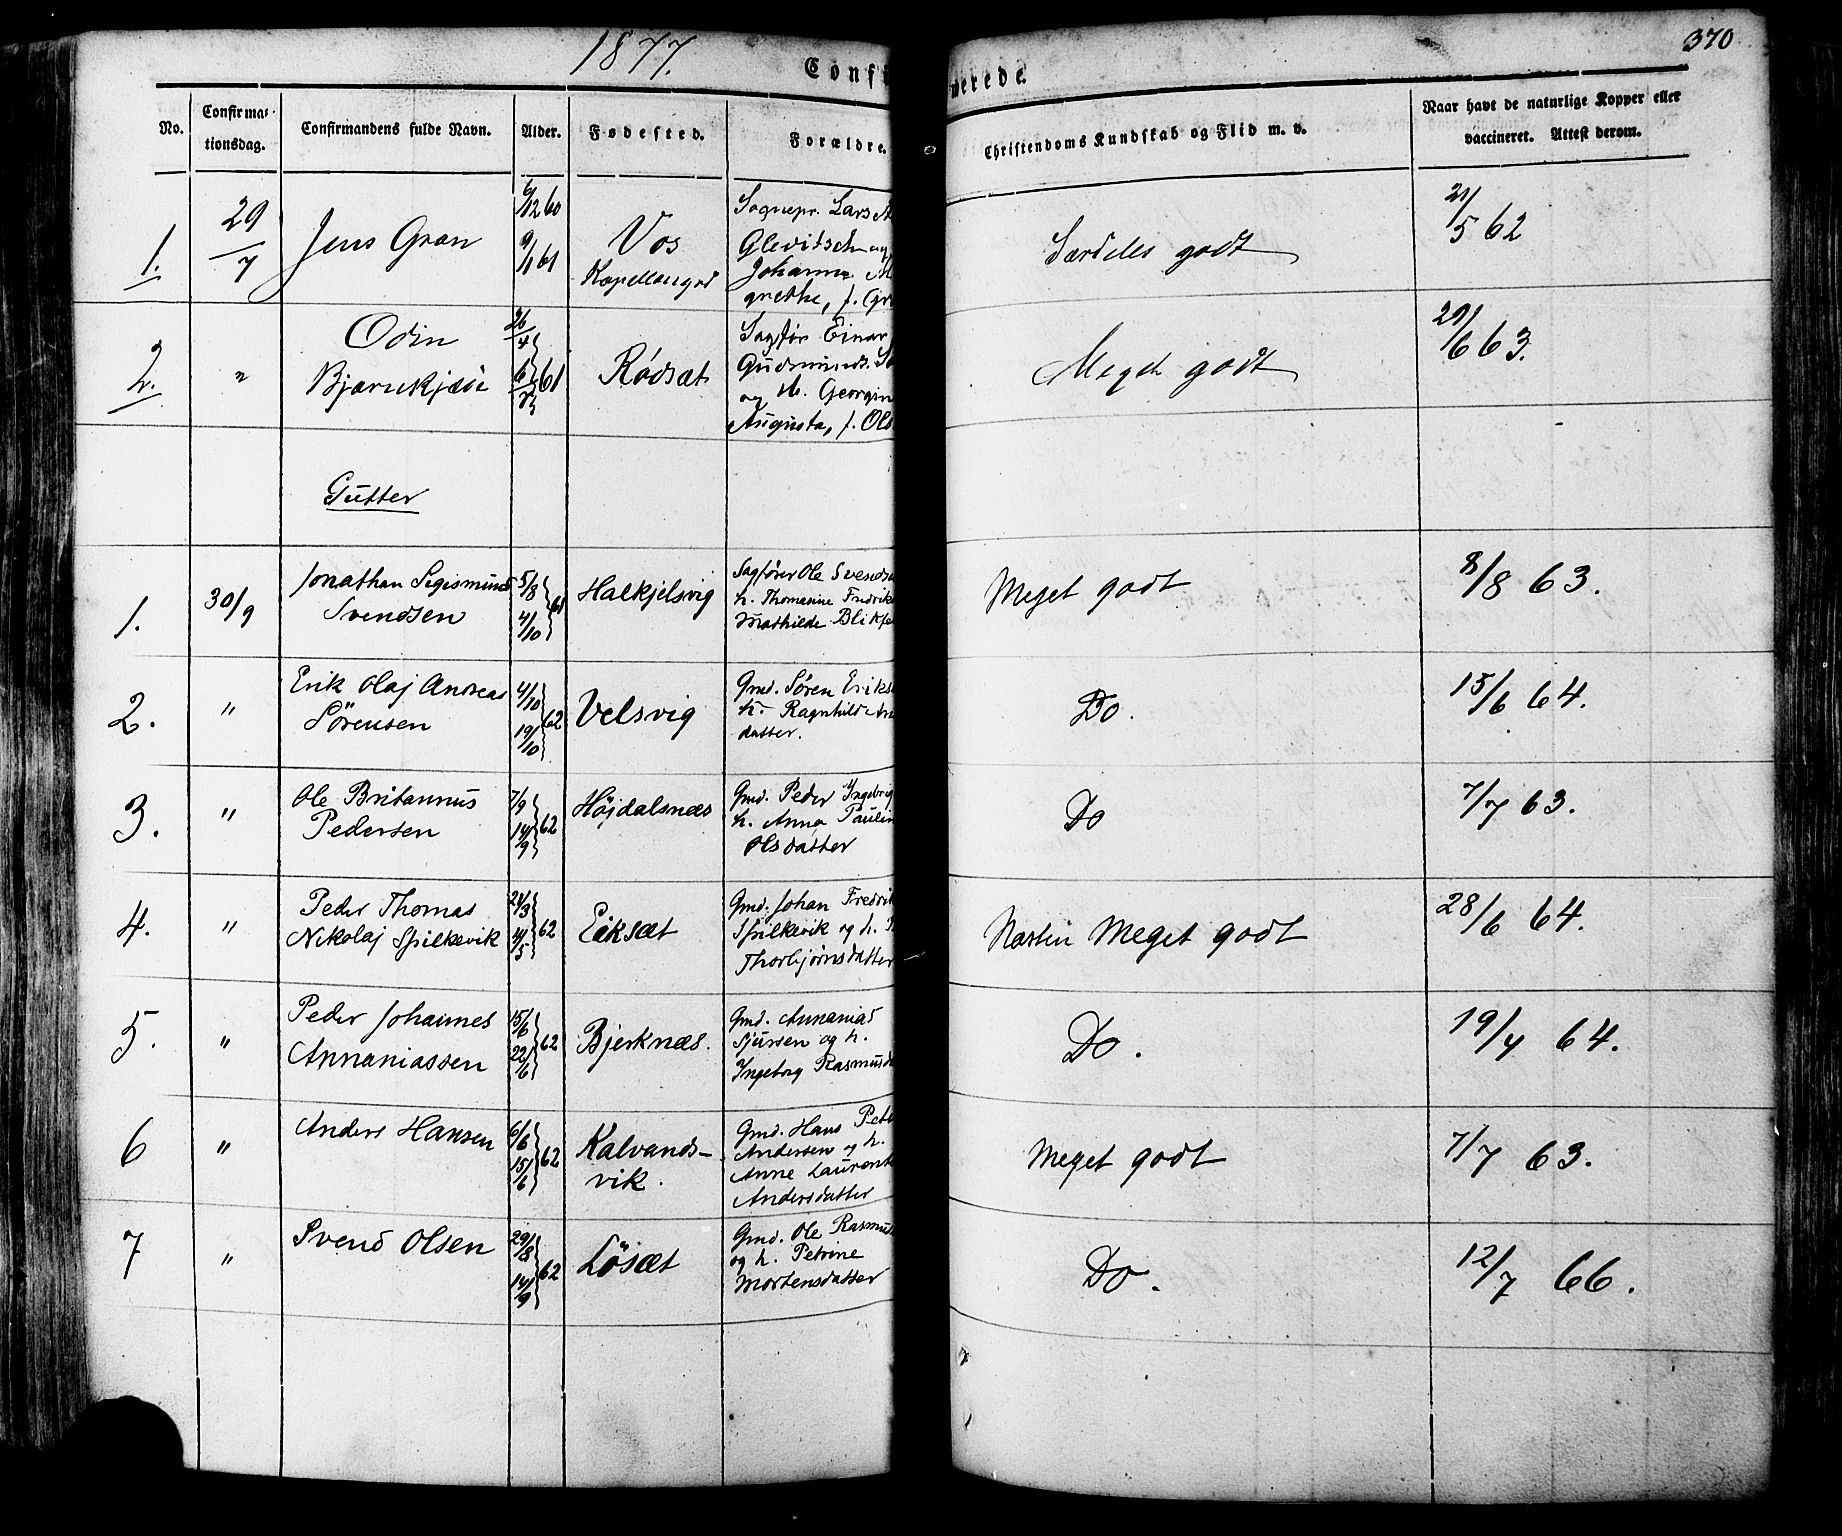 1877.
370
Confi
merede.
No.
Confirmationsdag.
Confirmandens fulde Navn.
Alder.
Fødested.
Forældre.
Christendoms Kundskab og Flid m. v.
Naar havt de naturlige Kopper eller
vaccineret. Attest derom.
1.
29/7
Jens Gran
6/12 60
9/1 61
Vos
Sognepr. Lars
Glevitsch og
Johanne
Særdeles godt
21/5 62
2.
"
Odin
26/4
61
Rødsæt
Sagfør Einar
Gudmunds.
og h. Georgin
Augusta, f. Ols
Meget godt
29/6 63.
Gutter
1.
30/9
Jonathan Sigismund
Svendsen
5/8
4/10
61
Halkjelsvig
Sagfører Ole Svends
h. Thomasine Fredrik
Mathilde Blikf
Meget godt
8/8 63.
2.
"
Erik Olaj Andreas
Sørensen
4/10
19/10
62
Velsvig
Gmd. Søren Eriks
h. Ragnhild An
datter.
Do.
15/6 64.
3.
"
Ole Britannus
Pedersen
7/9
14/9
62
Højdalsnæs
Gmd. Peder Ingebrig
h. Anna Paulin
Olsdatter
Do
7/7 63.
4.
"
Peder Thomas
Nikolaj Spilkevik
24/3
4/5
62
Eiksæt
Gmd. Johan Fredrik
Spilkevik og h.
Thorbjørnsdatter
Næsten Meget godt
28/6 64.
5.
"
Peder Johannes
Annaniassen
15/6
22/6
62
Bjerknæs.
Gmd. Annanias
Sjursen og h.
Ingeborg Rasmusda
Do.
19/7 64.
6
"
Anders Hansen
6/6
15/6
62
Kalvands-
vik.
Gmd. Hans Pet
Andersen og h.
Anne Laurent
Andersdatter
Meget godt
7/7 63.
7
"
Svend Olsen
29/8
14/9
62
Løsæt
Gmd. Ole Rasmus
og h. Petrine
Mortensdatter
Do.
12/7 66.